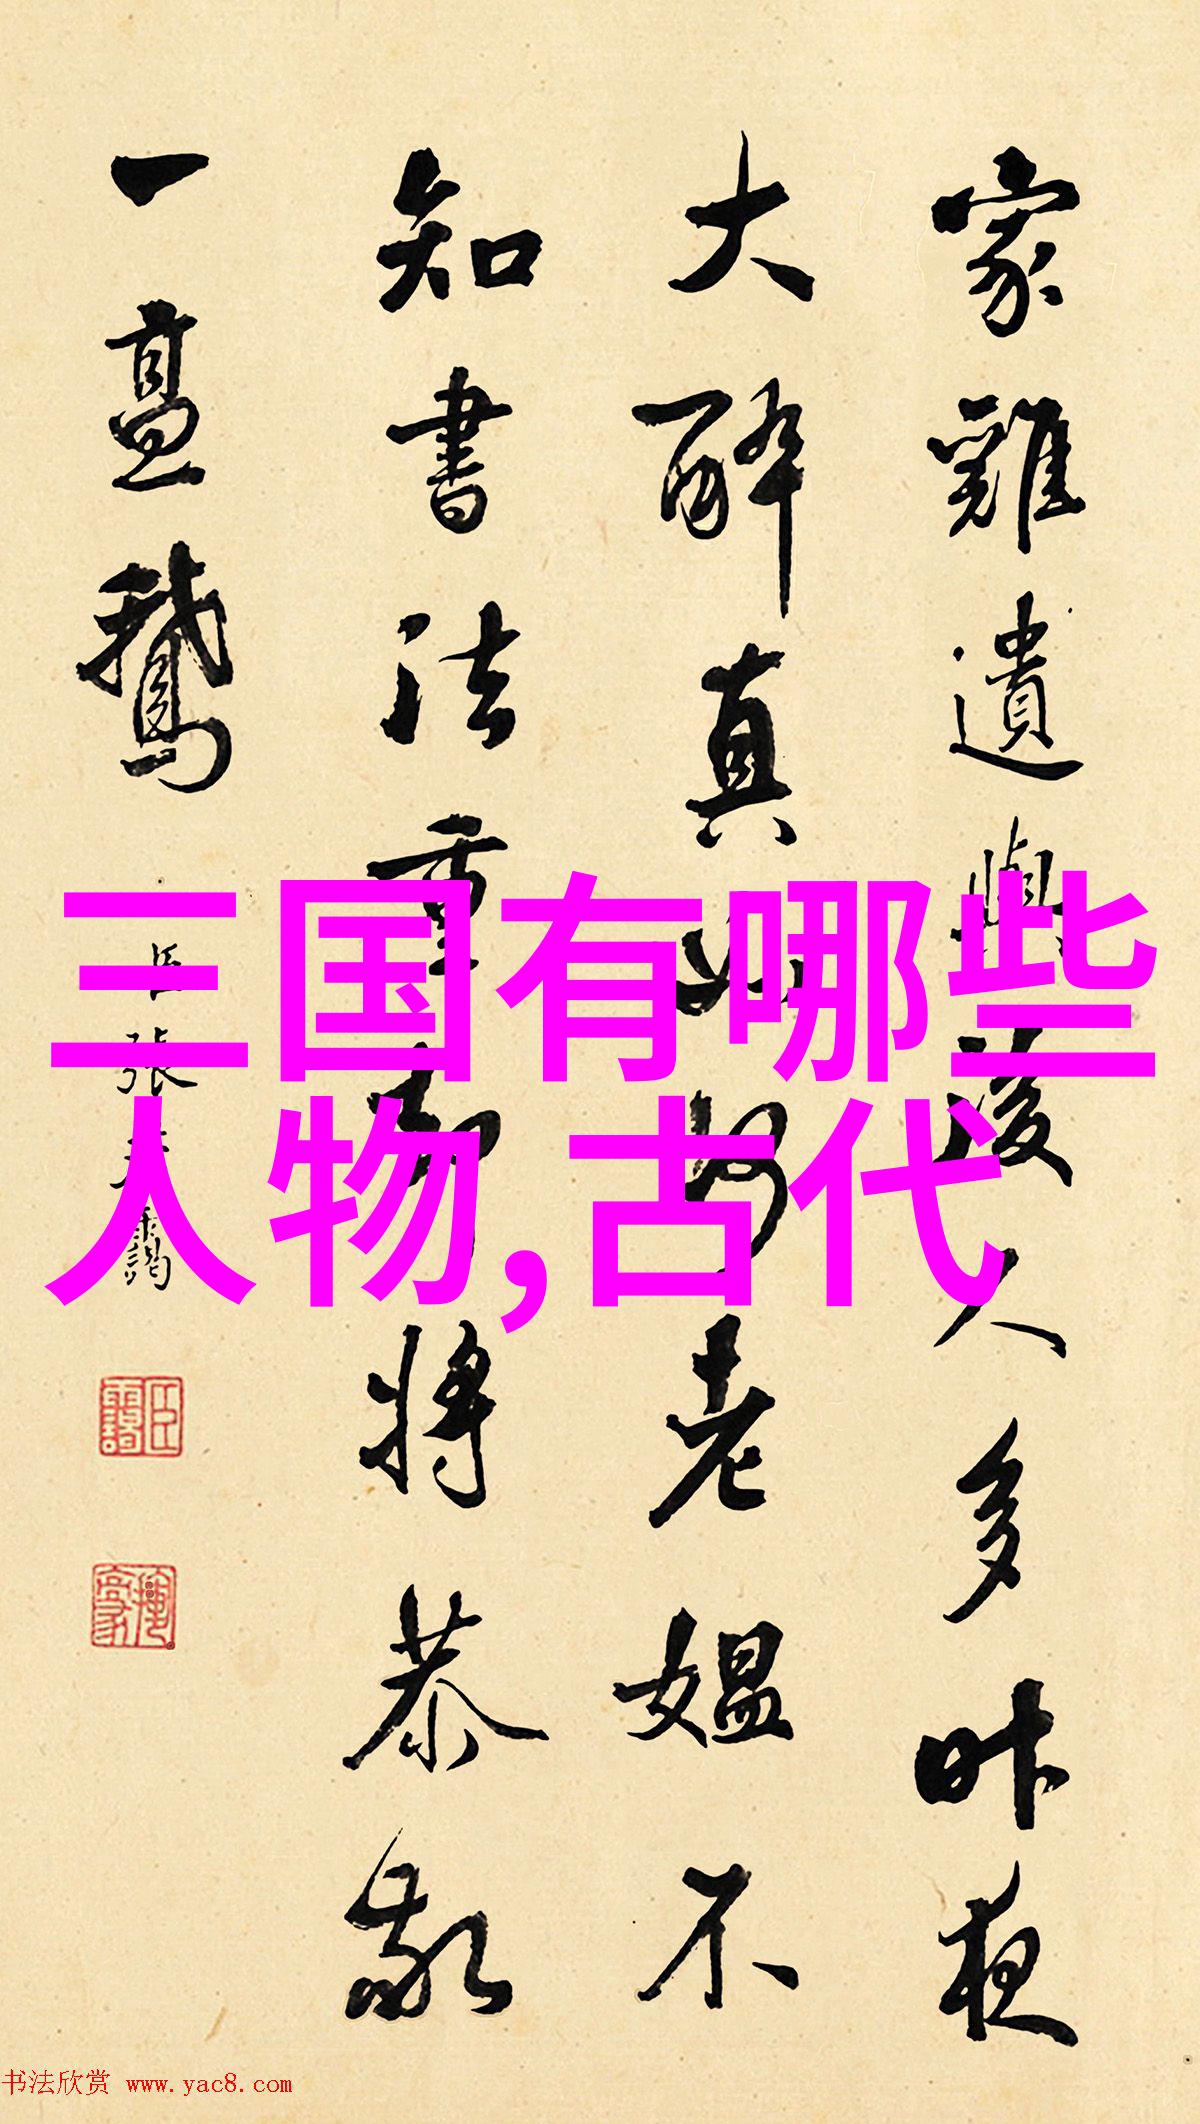 家雞遺與後人多昨夜
大醉真如何老媼不
知書法重將恭敬
一鵞
臣張
三国有哪些
人物,古代
书法欣赏 www.yac8.com